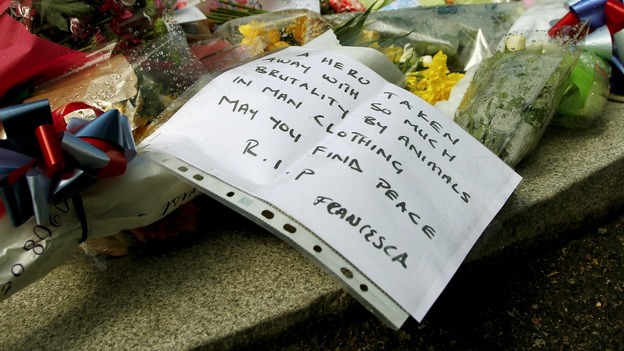 A HERO TAKEN
AWAY WITH SO MUCH
BRUTALITY BY ANIMALS
IN MAN CLOTHING
MAY YOU FIND PEACE
R.I.P
FRANCESCA